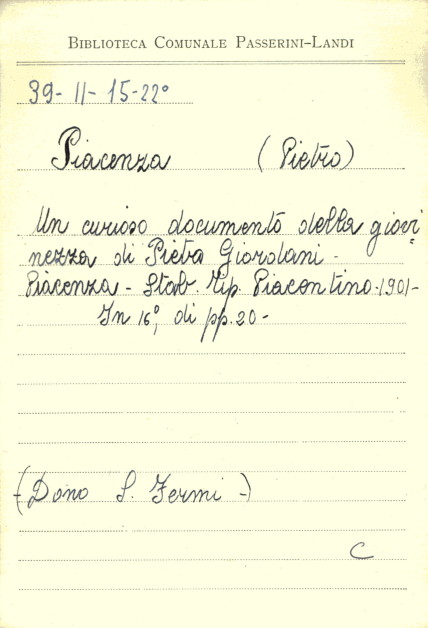 BIBLIOTECA COMUNALE PASSERINI-LANDI
39-II-15-22°
Piacenza (Pietro)
Un curioso documento della giovi
nezza di Pietro Giordani -
Piacenza - Stab. Tip. Piacentino - 1901 -
In 16°, di pp. 20 -
(Dono S. Fermi -)
C